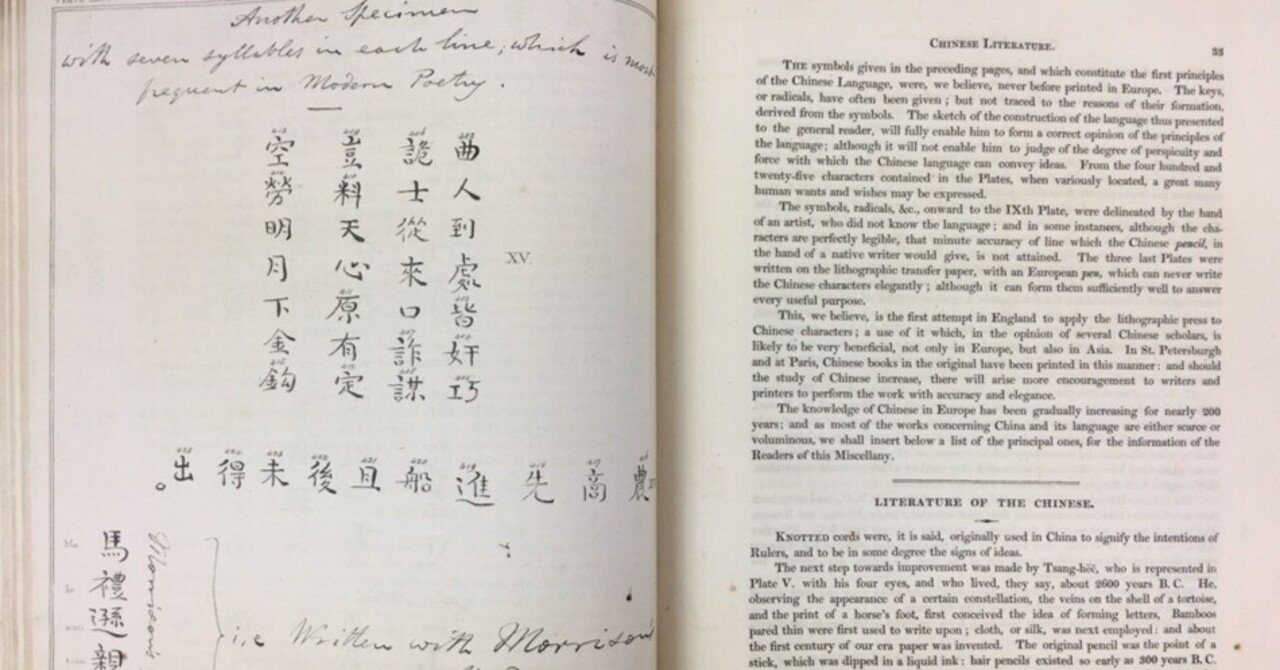 Another Specimen
with seven syllables in each line, which is most
frequent in Modern Poetry.
曲人到處皆奸巧
詭士從來口詐謀
豈料天心原有定
空勞明月下金鈎
XV.
農商先進船且後未得出。
馬禮遜親
Morrison's
i.e Written with Morrison's
CHINESE LITERATURE.
33
THE symbols given in the preceding pages, and which constitute the first principles
of the Chinese Language, were, we believe, never before printed in Europe. The keys,
or radicals, have often been given; but not traced to the reasons of their formation,
derived from the symbols. The sketch of the construction of the language thus presented
to the general reader, will fully enable him to form a correct opinion of the principles of
the language; although it will not enable him to judge of the degree of perspicuity and
force with which the Chinese language can convey ideas. From the four hundred and
twenty-five characters contained in the Plates, when variously located, a great many
human wants and wishes may be expressed.
The symbols, radicals, &c., onward to the IXth Plate, were delineated by the hand
of an artist, who did not know the language; and in some instances, although the cha-
racters are perfectly legible, that minute accuracy of line which the Chinese pencil, in
the hand of a native writer would give, is not attained. The three last Plates were
written on the lithographic transfer paper, with an European pen, which can never write
the Chinese characters elegantly; although it can form them sufficiently well to answer
every useful purpose.
This, we believe, is the first attempt in England to apply the lithographic press to
Chinese characters; a use of it which, in the opinion of several Chinese scholars, is
likely to be very beneficial, not only in Europe, but also in Asia. In St. Petersburgh
and at Paris, Chinese books in the original have been printed in this manner: and should
the study of Chinese increase, there will arise more encouragement to writers and
printers to perform the work with accuracy and elegance.
The knowledge of Chinese in Europe has been gradually increasing for nearly 200
years; and as most of the works concerning China and its language are either scarce or
voluminous, we shall insert below a list of the principal ones, for the information of the
Readers of this Miscellany.
LITERATURE OF THE CHINESE.
KNOTTED cords were, it is said, originally used in China to signify the intentions of
Rulers, and to be in some degree the signs of ideas.
The next step towards improvement was made by Tsang-hëĕ, who is represented in
Plate V. with his four eyes, and who lived, they say, about 2600 years B.C. He,
observing the appearance of a certain constellation, the veins on the shell of a tortoise,
and the print of a horse's foot, first conceived the idea of forming letters, Bamboos
pared thin were first used to write upon; cloth, or silk, was next employed: and about
the first century of our era paper was invented. The original pencil was the point of a
stick, which was dipped in a liquid ink: hair pencils existed so early as 300 years B.C.